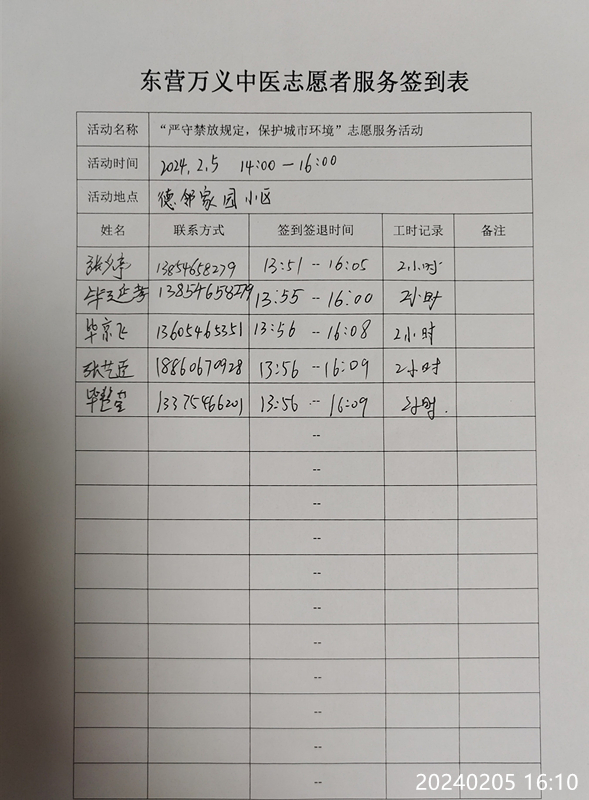 东营万义中医志愿者服务签到表
活动名称 “严守禁放规定，保护城市环境”志愿服务活动
活动时间 2024.2.5 14:00—16:00
活动地点 德邻家园小区
姓名 联系方式 签到签退时间 工时记录 备注
13854658279 13:51 -- 16:05 2小时
13854658279 13:55 -- 16:00 2小时
毕京飞 13605465351 13:56 -- 16:08 2小时
张艺臣 18860670928 13:56 -- 16:09 2小时
13375466201 13:56 -- 16:09 2小时.
--
--
--
--
--
--
--
--
--
--
--
20240205 16:10